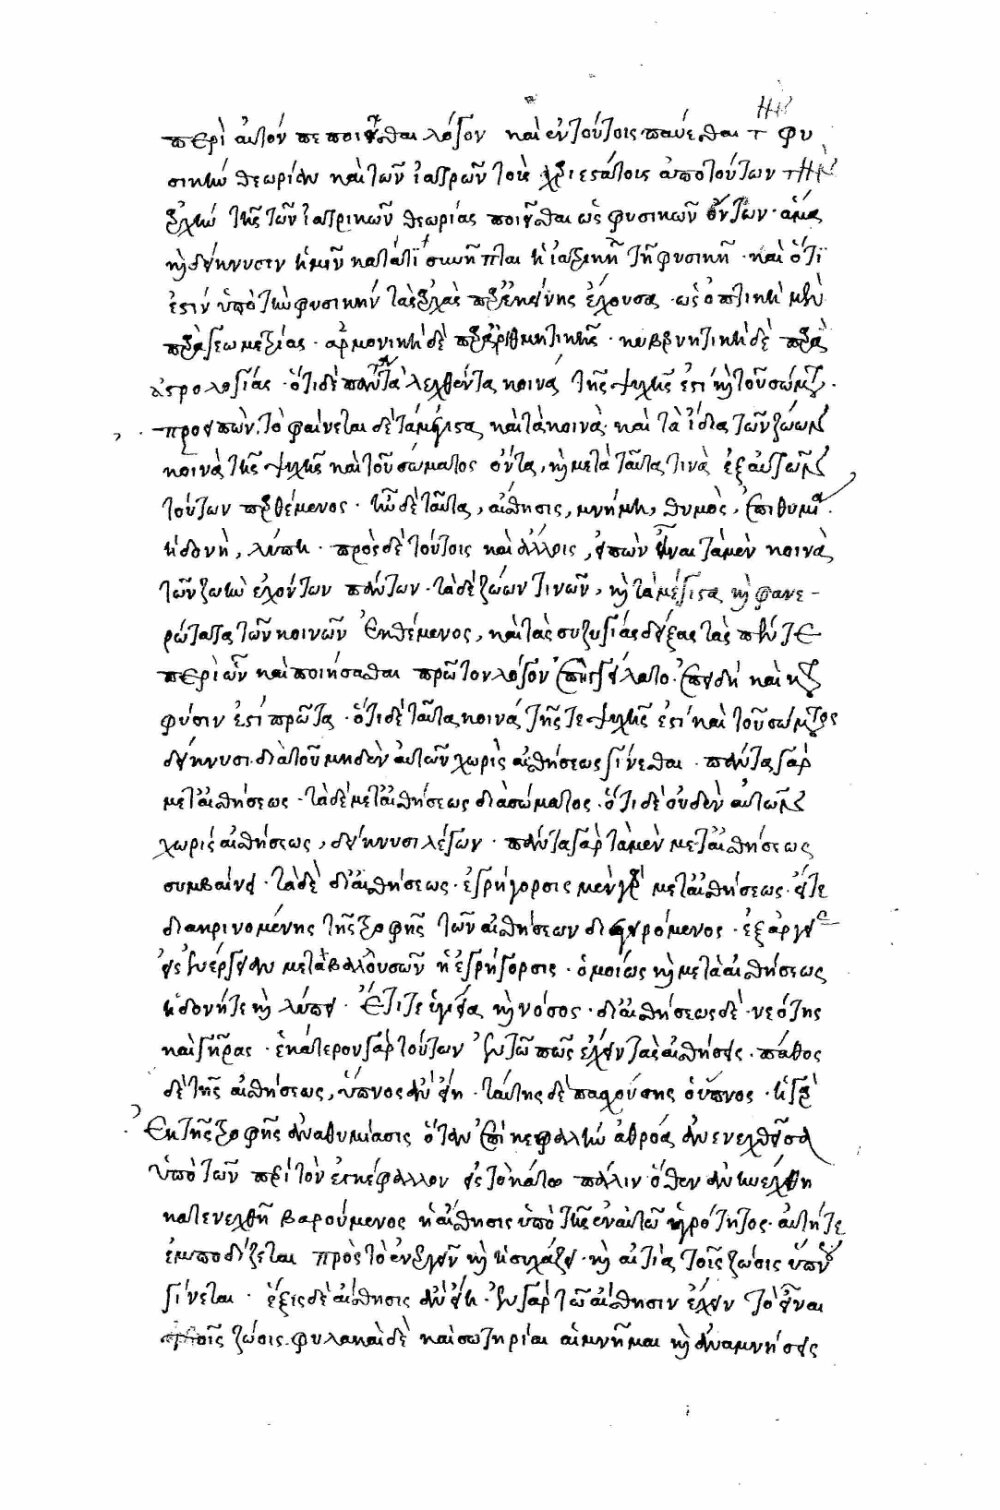 περὶ αὐτὸν πεποιῆσθαι λόγον καὶ ἐν τούτοις παύεσθαι τ φυ
σικὴν θεωρίαν καὶ τῶν ἰατρῶν τοὺς χαριεστάτοις ἀπὸ τούτων τὴν
ἀρχὴν τῆς τῶν ἰατρικῶν θεωρίας ποιεῖσθαι ὡς φυσικῶν ὄντων · ἅμα
καὶ δείκνυσιν ἡμῖν κατὰ τί συνῆπται ἡ ἰατρικὴ τῇ φυσικῇ · καὶ ὅτι
ἐστὶν ὑπὸ τὴν φυσικὴν τὰς ἀρχὰς παρ' ἐκείνης ἔχουσα · ὡς ὀπτικὴ μὲν
παρὰ γεωμετρίας · ἁρμονικὴ δὲ παρ' ἀριθμητικῆς · κυβερνητικὴ δὲ παρὰ
ἀστρολογίας · ὅτι δὲ πάντα τὰ λεχθέντα κοινὰ τῆς ψυχῆς ἐστὶ καὶ τοῦ σώματος ·
προειπὼν, τὸ φαίνεται δὲ τὰ μέγιστα καὶ τὰ κοινὰ καὶ τὰ ἴδια τῶν ζώων
κοινὰ τῆς ψυχῆς καὶ τοῦ σώματος ὄντα, καὶ μετὰ ταῦτα τινὰ ἐξ αὐτῶν
τούτων παραθέμενος · τῷ δὲ ταῦτα, αἴσθησις, μνήμη, θυμὸς, ἐπιθυμία ·
ἡδονὴ, λύπη · πρὸς δὲ τούτοις καὶ ἄλλοις, εἰπὼν εἶναι τὰ μὲν κοινὰ
τῶν ζωὴν ἐχόντων πάντων · τὰ δὲ ζώων τινῶν, καὶ τὰ μέγιστα καὶ φανε-
ρώτατα τῶν κοινῶν ἐκθέμενος, καὶ τὰς συζυγίας δείξας τὰς πέντε
περὶ ὧν καὶ ποιήσασθαι πρῶτον λόγον ἐπηγγείλατο · ἐπειδὴ καὶ κατὰ
φύσιν ἐστὶ πρῶτα · ὅτι δὲ ταῦτα κοινὰ τῆς τε ψυχῆς ἐστὶ καὶ τοῦ σώματος
δείκνυσι διὰ τοῦ μηδὲν αὐτῶν χωρὶς αἰσθήσεως γίνεσθαι · πάντα γὰρ
μετ' αἰσθήσεως · τὰ δὲ μετ' αἰσθήσεως διὰ σώματος · ὅτι δὲ οὐδὲν αὐτῶν
χωρὶς αἰσθήσεως, δείκνυσι λέγων · πάντα γὰρ τὰ μὲν μετ' αἰσθήσεως
συμβαίνει · τὰ δὲ δι' αἰσθήσεως · ἐγρήγορσις μὲν γὰρ μετ' αἰσθήσεως · εἴτε
διακρινομένης τῆς τροφῆς τῶν αἰσθήσεων διεγειρόμενος · ἐξ ἀργεί
εἰς ἐνέργειαν μεταβαλλουσῶν ἡ ἐγρήγορσις · ὁμοίως καὶ μετὰ αἰσθήσεως
ἡδονή τε καὶ λύπη · ἔτι τε ὑγεία καὶ νόσος · δι' αἰσθήσεως δὲ · νεότης
καὶ γῆρας · ἑκάτερον γὰρ τούτων ἐν τῷ πῶς ἔχειν τὰς αἰσθήσεις · πάθος
δὲ τῆς αἰσθήσεως, ὕπνος ἂν εἴη · ταύτης δὲ παχούσης ὁ ὕπνος · ἡ γὰρ
ἐκ τῆς τροφῆς ἀναθυμίασις ὅταν ἐπὶ κεφαλὴν ἀθρόα ἀνενεχθεῖσα
ὑπὸ τῶν περὶ τὸν ἐγκέφαλον εἰς τὸ κάτω πάλιν ὅθεν ἀνηνέχθη
κατενεχθῇ βαρούμενος ἡ αἴσθησις ὑπὸ τῆς ἐν αὐτῷ ὑγρότητος · αὐτή τε
ἐμποδίζεται πρὸς τὸ ἐνεργεῖν καὶ ἡσυχάζει · καὶ αἰτία τοῖς ζώοις ὕπνου
γίνεται · ἕξις δὲ αἴσθησις ἂν εἴη · ἐν γὰρ τῷ αἴσθησιν ἔχειν τὸ εἶναι
τοῖς ζώοις · φυλακαὶ δὲ καὶ σωτηρίαι αἱ μνῆμαι καὶ ἀναμνήσεις